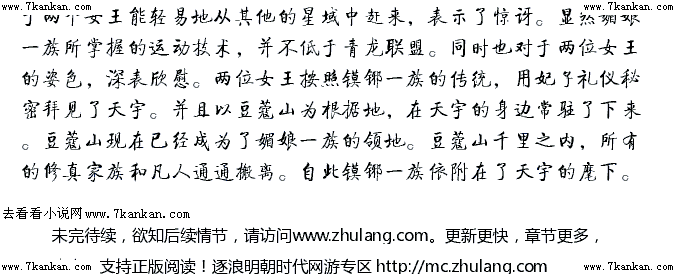 www.7kankan.com www.7kankan.com www.7kankan.com
了两个女王能轻易地从其他的星域中赶来，表示了惊讶。显然媚娘
一族所掌握的运动技术，并不低于青龙联盟。同时也对于两位女王
的姿色，深表欣慰。两位女王按照镆铘一族的传统，用妃子礼仪秘
密拜见了天宇。并且以豆蔻山为根据地，在天宇的身边常驻了下来
。豆蔻山现在已经成为了媚娘一族的领地。豆蔻山千里之内，所有
的修真家族和凡人通通搬离。自此镆铘一族依附在了天宇的麾下。
去看看小说网www.7kankan.com
未完待续，欲知后续情节，请访问www.zhulang.com。更新更快，章节更多，
支持正版阅读！逐浪明朝时代网游专区 http://mc.zhulang.com/
www.7kankan.com www.7kankan.com www.7kankan.com